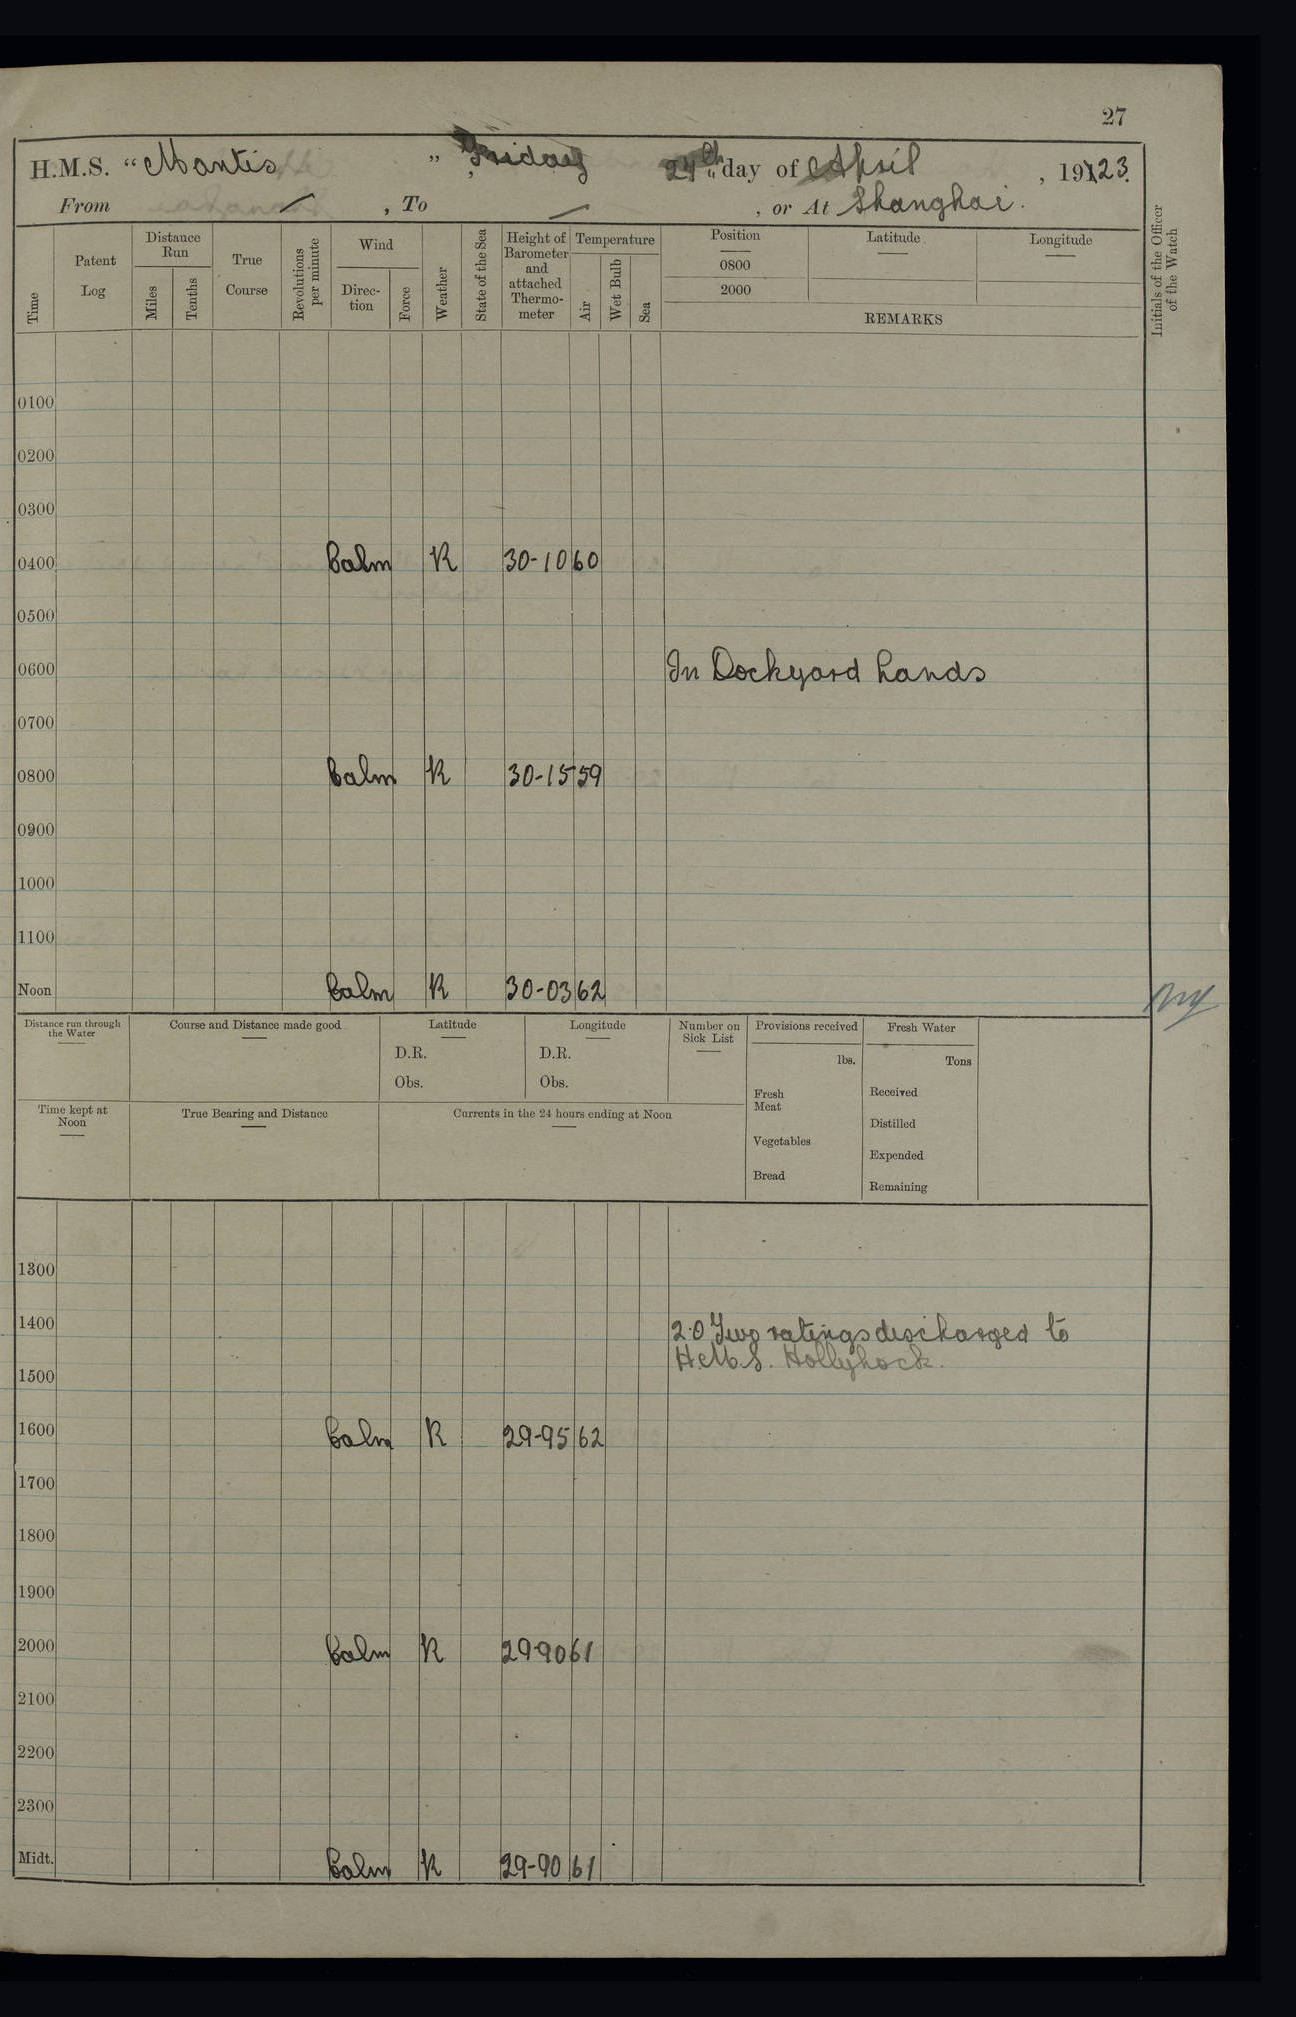 27
H.M.S. “Mantis ”, Friday 24th day of April, 19123.
From ✓, To —, or At Shanghai.
Time
Patent Log
Distance Run
Miles
Tenths
True Course
Revolutions per minute
Wind
Direction
Force
Weather
State of the Sea
Height of Barometer and attached Thermometer
Temperature
Air
Wet Bulb
Sea
Position
0800
2000
Latitude
Longitude
REMARKS
Initials of the Officer of the Watch
0100
0200
0300
0400 Calm R 30-10 60
0500
0600 In Dockyard hands
0700
0800 Calm R 30-15 59
0900
1000
1100
Noon Calm R 30-03 62
Distance run through the Water
Course and Distance made good
Latitude
D.R.
Obs.
Longitude
D.R.
Obs.
Number on Sick List
Provisions received
lbs.
Fresh Meat
Vegetables
Bread
Fresh Water
Tons
Received
Distilled
Expended
Remaining
Time kept at Noon
True Bearing and Distance
Currents in the 24 hours ending at Noon
1300
1400 2.0 Two ratings discharged to
H.M.S. Hollyhock.
1500
1600 Calm R 29-95 62
1700
1800
1900
2000 Calm R 29-90 61
2100
2200
2300
Midt. Calm R 29-90 61